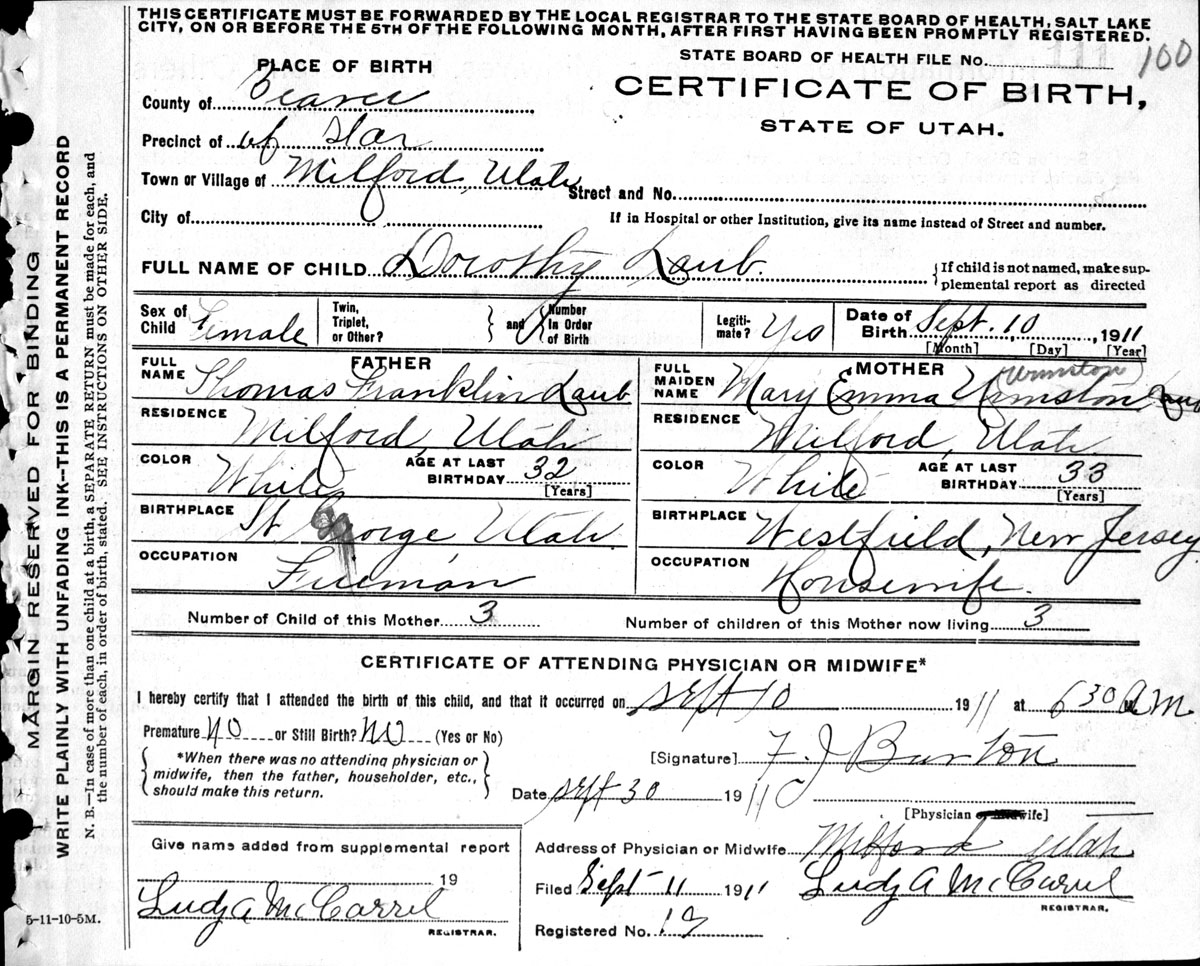 THIS CERTIFICATE MUST BE FORWARDED BY THE LOCAL REGISTRAR TO THE STATE BOARD OF HEALTH, SALT LAKE
CITY, ON OR BEFORE THE 5TH OF THE FOLLOWING MONTH, AFTER FIRST HAVING BEEN PROMPTLY REGISTERED.
STATE BOARD OF HEALTH FILE No. 111 100
PLACE OF BIRTH
CERTIFICATE OF BIRTH,
STATE OF UTAH.
County of Beaver
Precinct of of Star
Town or Village of Milford, Utah Street and No.
City of
If in Hospital or other Institution, give its name instead of Street and number.
FULL NAME OF CHILD Dorothy Laub. If child is not named, make sup-
plemental report as directed
Sex of Child Female Twin, Triplet, or Other? and Number in Order of Birth Legiti-mate? Yes Date of Birth Sept. 10, 1911
[Month] [Day] [Year]
FATHER MOTHER
FULL NAME Thomas Franklin Laub FULL MAIDEN NAME Mary Emma Urmston (Urmston) Laub
RESIDENCE Milford, Utah RESIDENCE Milford, Utah
COLOR White AGE AT LAST BIRTHDAY 32 [Years] COLOR White AGE AT LAST BIRTHDAY 33 [Years]
BIRTHPLACE St George, Utah. BIRTHPLACE Westfield, New Jersey.
OCCUPATION Fireman OCCUPATION Housewife.
Number of Child of this Mother 3 Number of children of this Mother now living 3
CERTIFICATE OF ATTENDING PHYSICIAN OR MIDWIFE*
I hereby certify that I attended the birth of this child, and that it occurred on Sept 10 1911 at 6 30 a M
Premature NO or Still Birth? NO (Yes or No)
*When there was no attending physician or
midwife, then the father, householder, etc.,
should make this return.
[Signature] F. J Burton
Date Sept 30 1911
[Physician or Midwife]
Give name added from supplemental report
19
Ludz A McCarrel
REGISTRAR.
Address of Physician or Midwife Milford Utah
Filed Sept 11 1911 Ludz A McCarrel
REGISTRAR.
Registered No.
5-11-10-5M.
MARGIN RESERVED FOR BINDING
WRITE PLAINLY WITH UNFADING INK—THIS IS A PERMANENT RECORD
N. B.—In case of more than one child at a birth, a SEPARATE RETURN must be made for each, and
the number of each, in order of birth, stated. SEE INSTRUCTIONS ON OTHER SIDE.